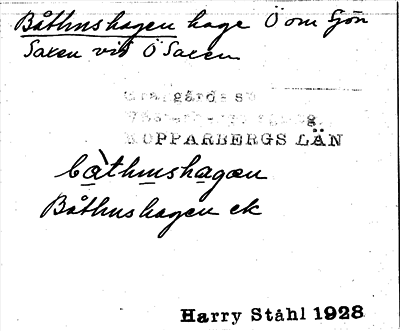 Båthushagen hage Ö om Sjön
Saxen vid Ö Saxen
Grangärde sn
KOPPARBERGS LÄN
bàthushagæn
Båthushagen ek
Harry Ståhl 1928